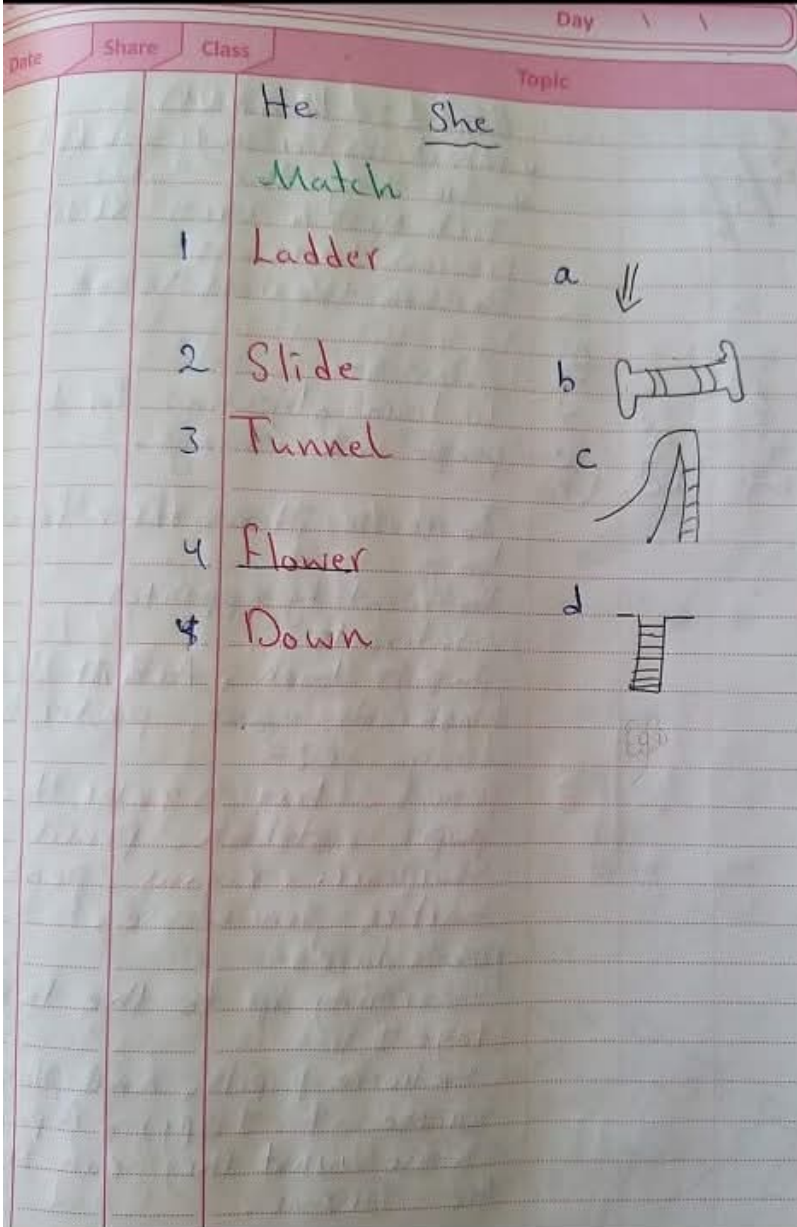 Day \ \
Date Share Class Topic
He She
Match
1 Ladder
a
2 Slide
b
3 Tunnel
c
4 flower
4 Down
d